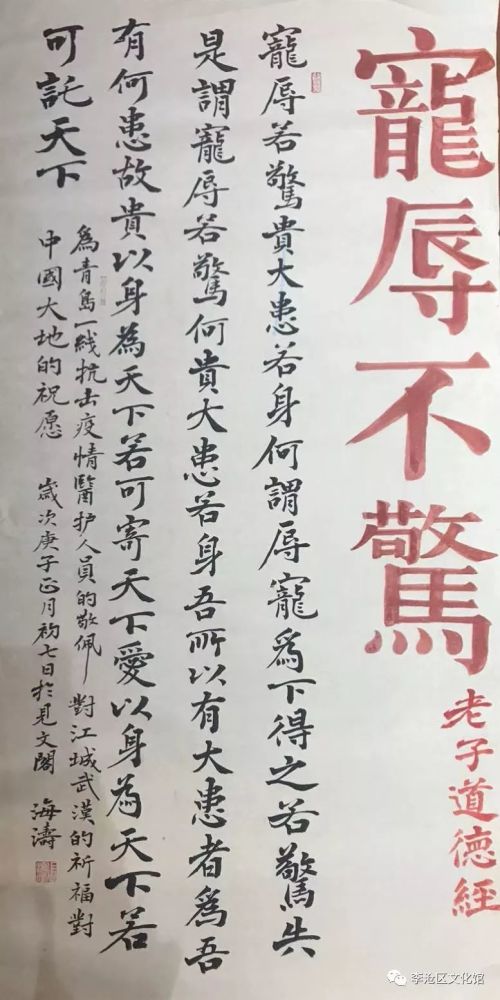 寵辱不驚
老子道德經
寵辱若驚貴大患若身何謂辱寵爲下得之若驚失
是謂寵辱若驚何貴大患若身吾所以有大患者爲吾
有何患故貴以身為天下若可寄天下愛以身為天下若
可託天下
爲青島一綫抗击疫情醫护人員的敬佩 對江城武漢的祈福對
中國大地的祝愿 歲次庚子正月初七日於見文閣 海濤
李沧区文化馆